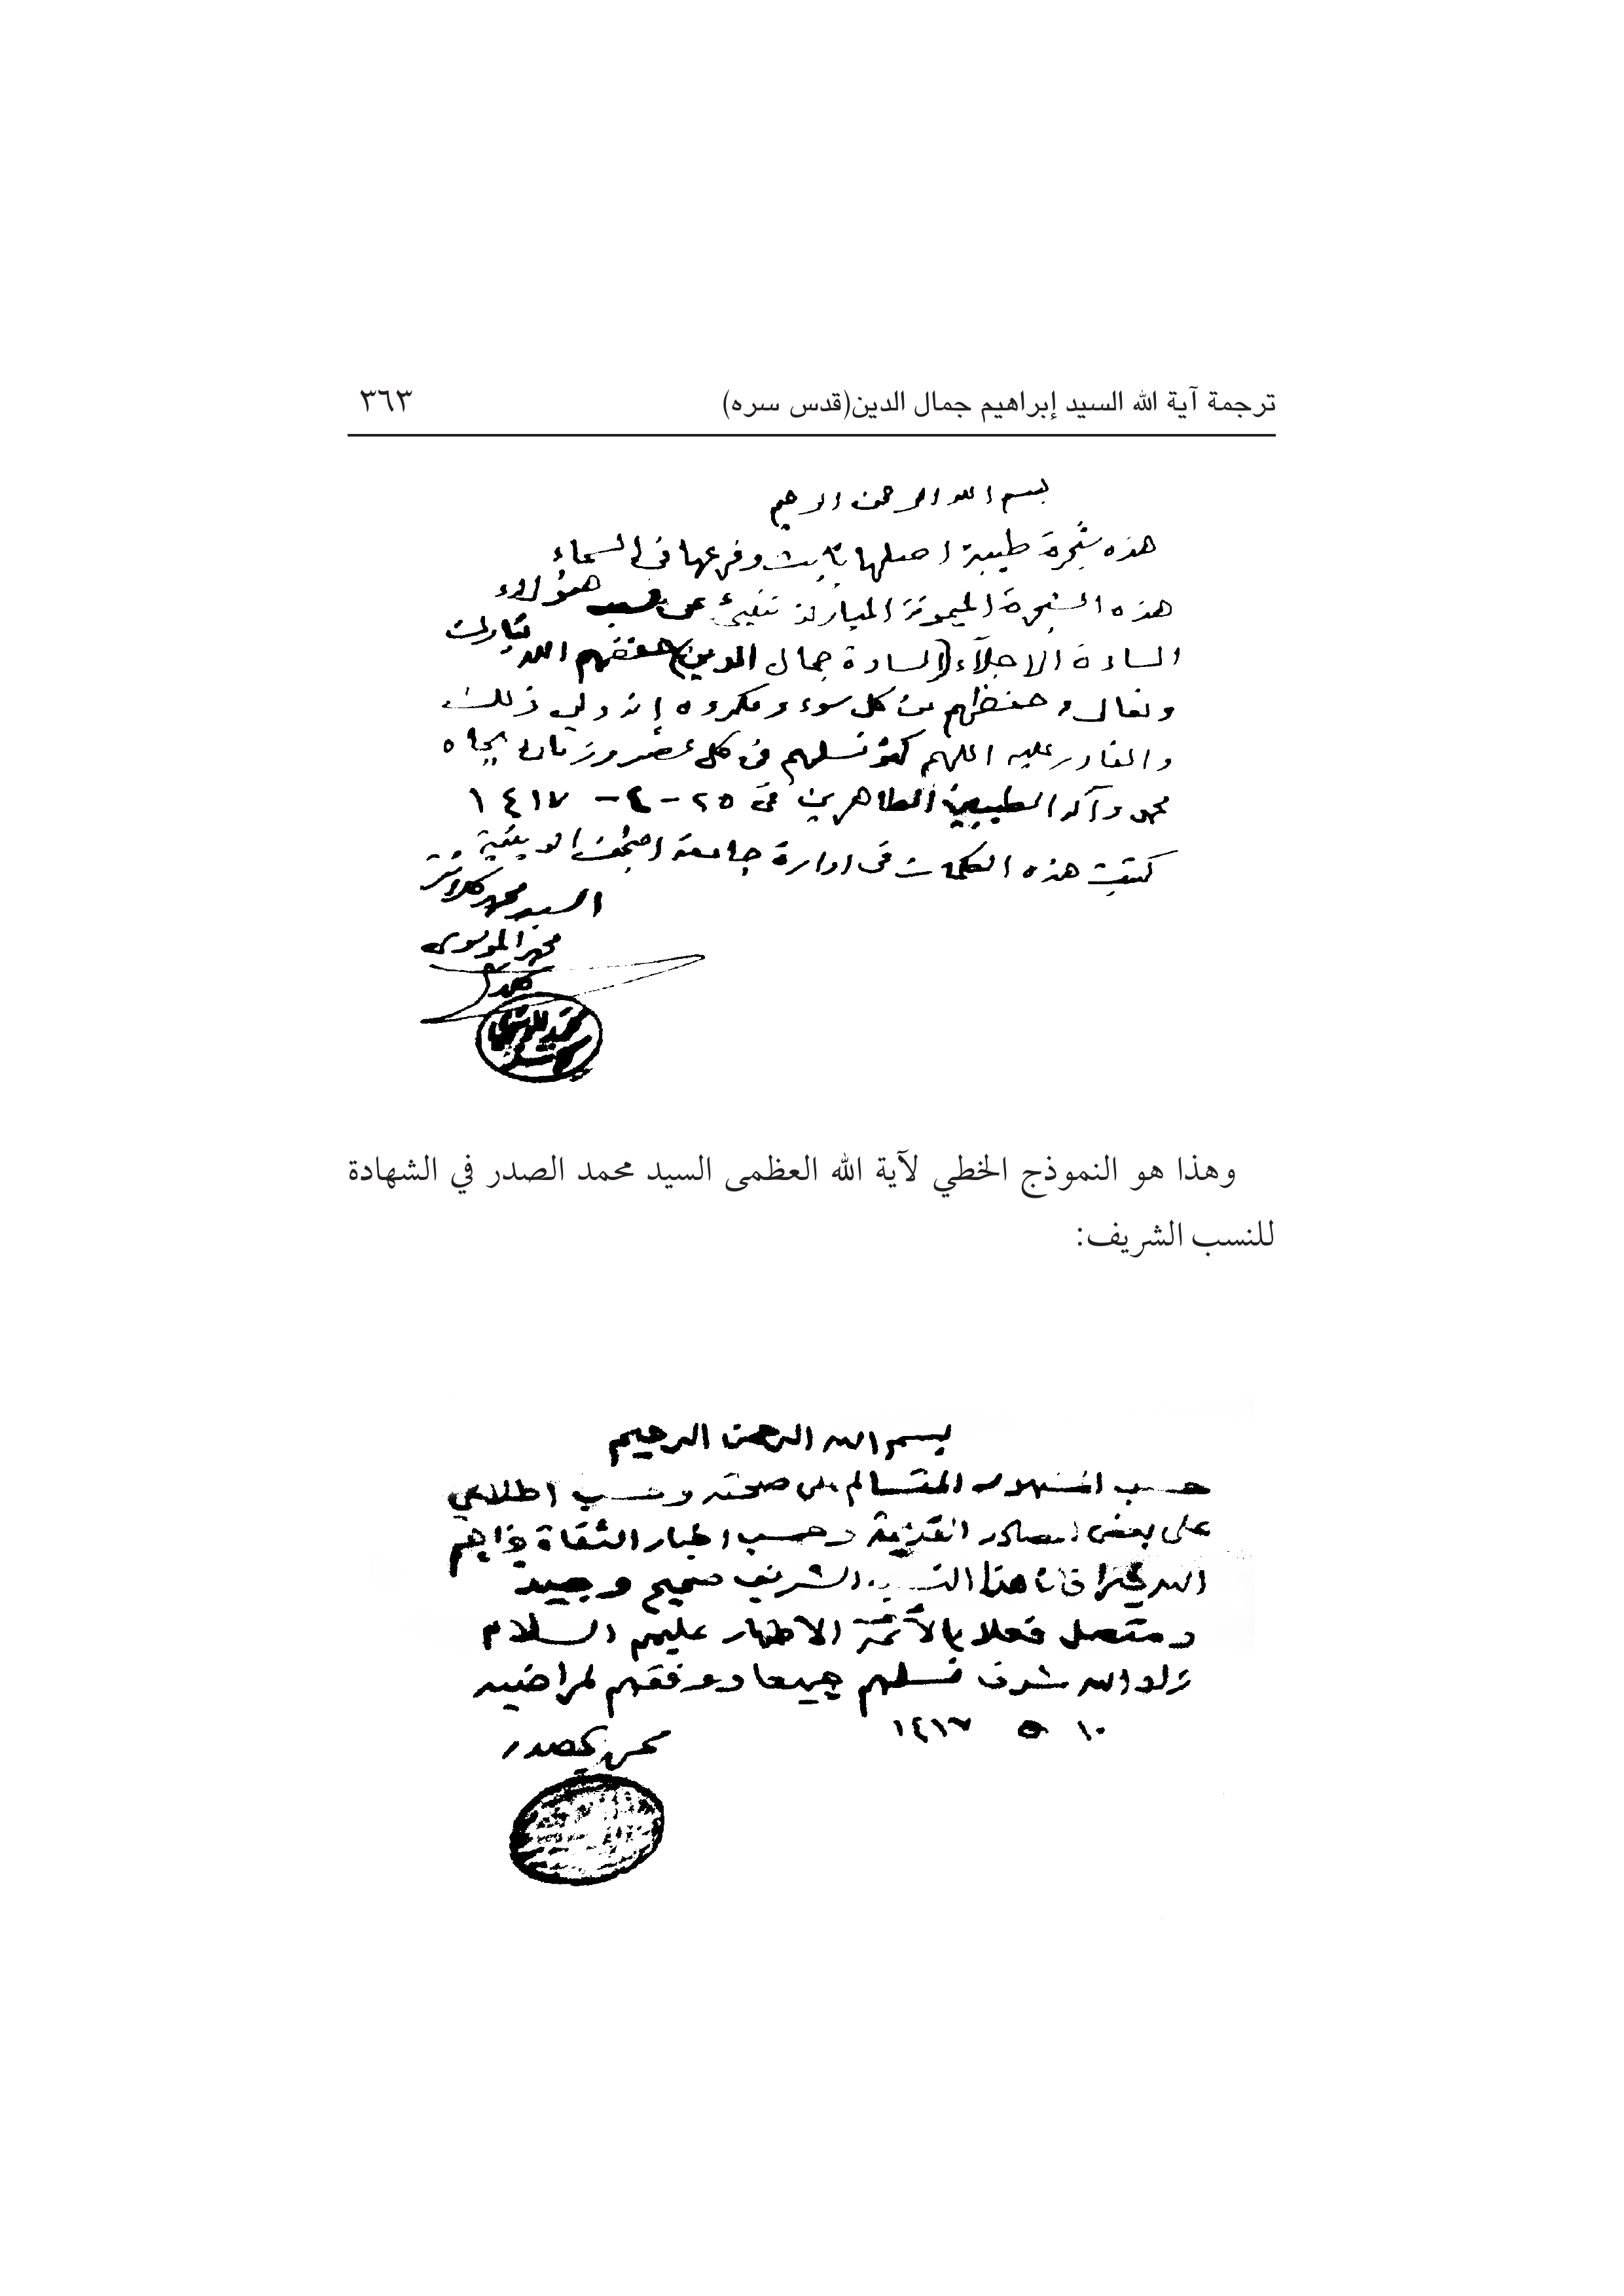 ترجمة آية الله السيد إبراهيم جمال الدين(قدس سره) ٣٦٣
بسم الله الرحمن الرحيم
هذه شجرة طيبة اصلها ثابت وفرعها في السماء
هذه الشجرة الميمونة المباركة تنبئ عن نسب هؤلاء
السادة الاجلآء (السادة جمال الدين) حفظهم الله تبارك
وتعالى و حفظهم من كل سوء ومكروه إنه ولي ذلك
والقادر عليه اللهم كثر نسلهم في كل عصر وزمان بجاه
محمد وآله الطيبين الطاهرين في ٢٥ - ٤ - ١٤١٧
كتبت هذه الكلمات في ادارة جامعة النجف الدينية
السيد محمد كلانتر
محمد الموسوي
وهذا هو النموذج الخطي لآية الله العظمى السيد محمد الصدر في الشهادة
للنسب الشريف:
بسم الله الرحمن الرحيم
حسب المتسالم على صحته وحسب اطلاعي
على بعض المصادر القديمة وحسب اخبار الثقاة جزاهم
الله خيرا فان هذا النسب الشريف صحيح وجيد
ومتصل فعلا بالأئمة الاطهار عليهم السلام
زاد الله شرف نسلهم جميعا ووفقهم لمراضيه
١٠ ٥ ١٤١٧
محمد الصدر